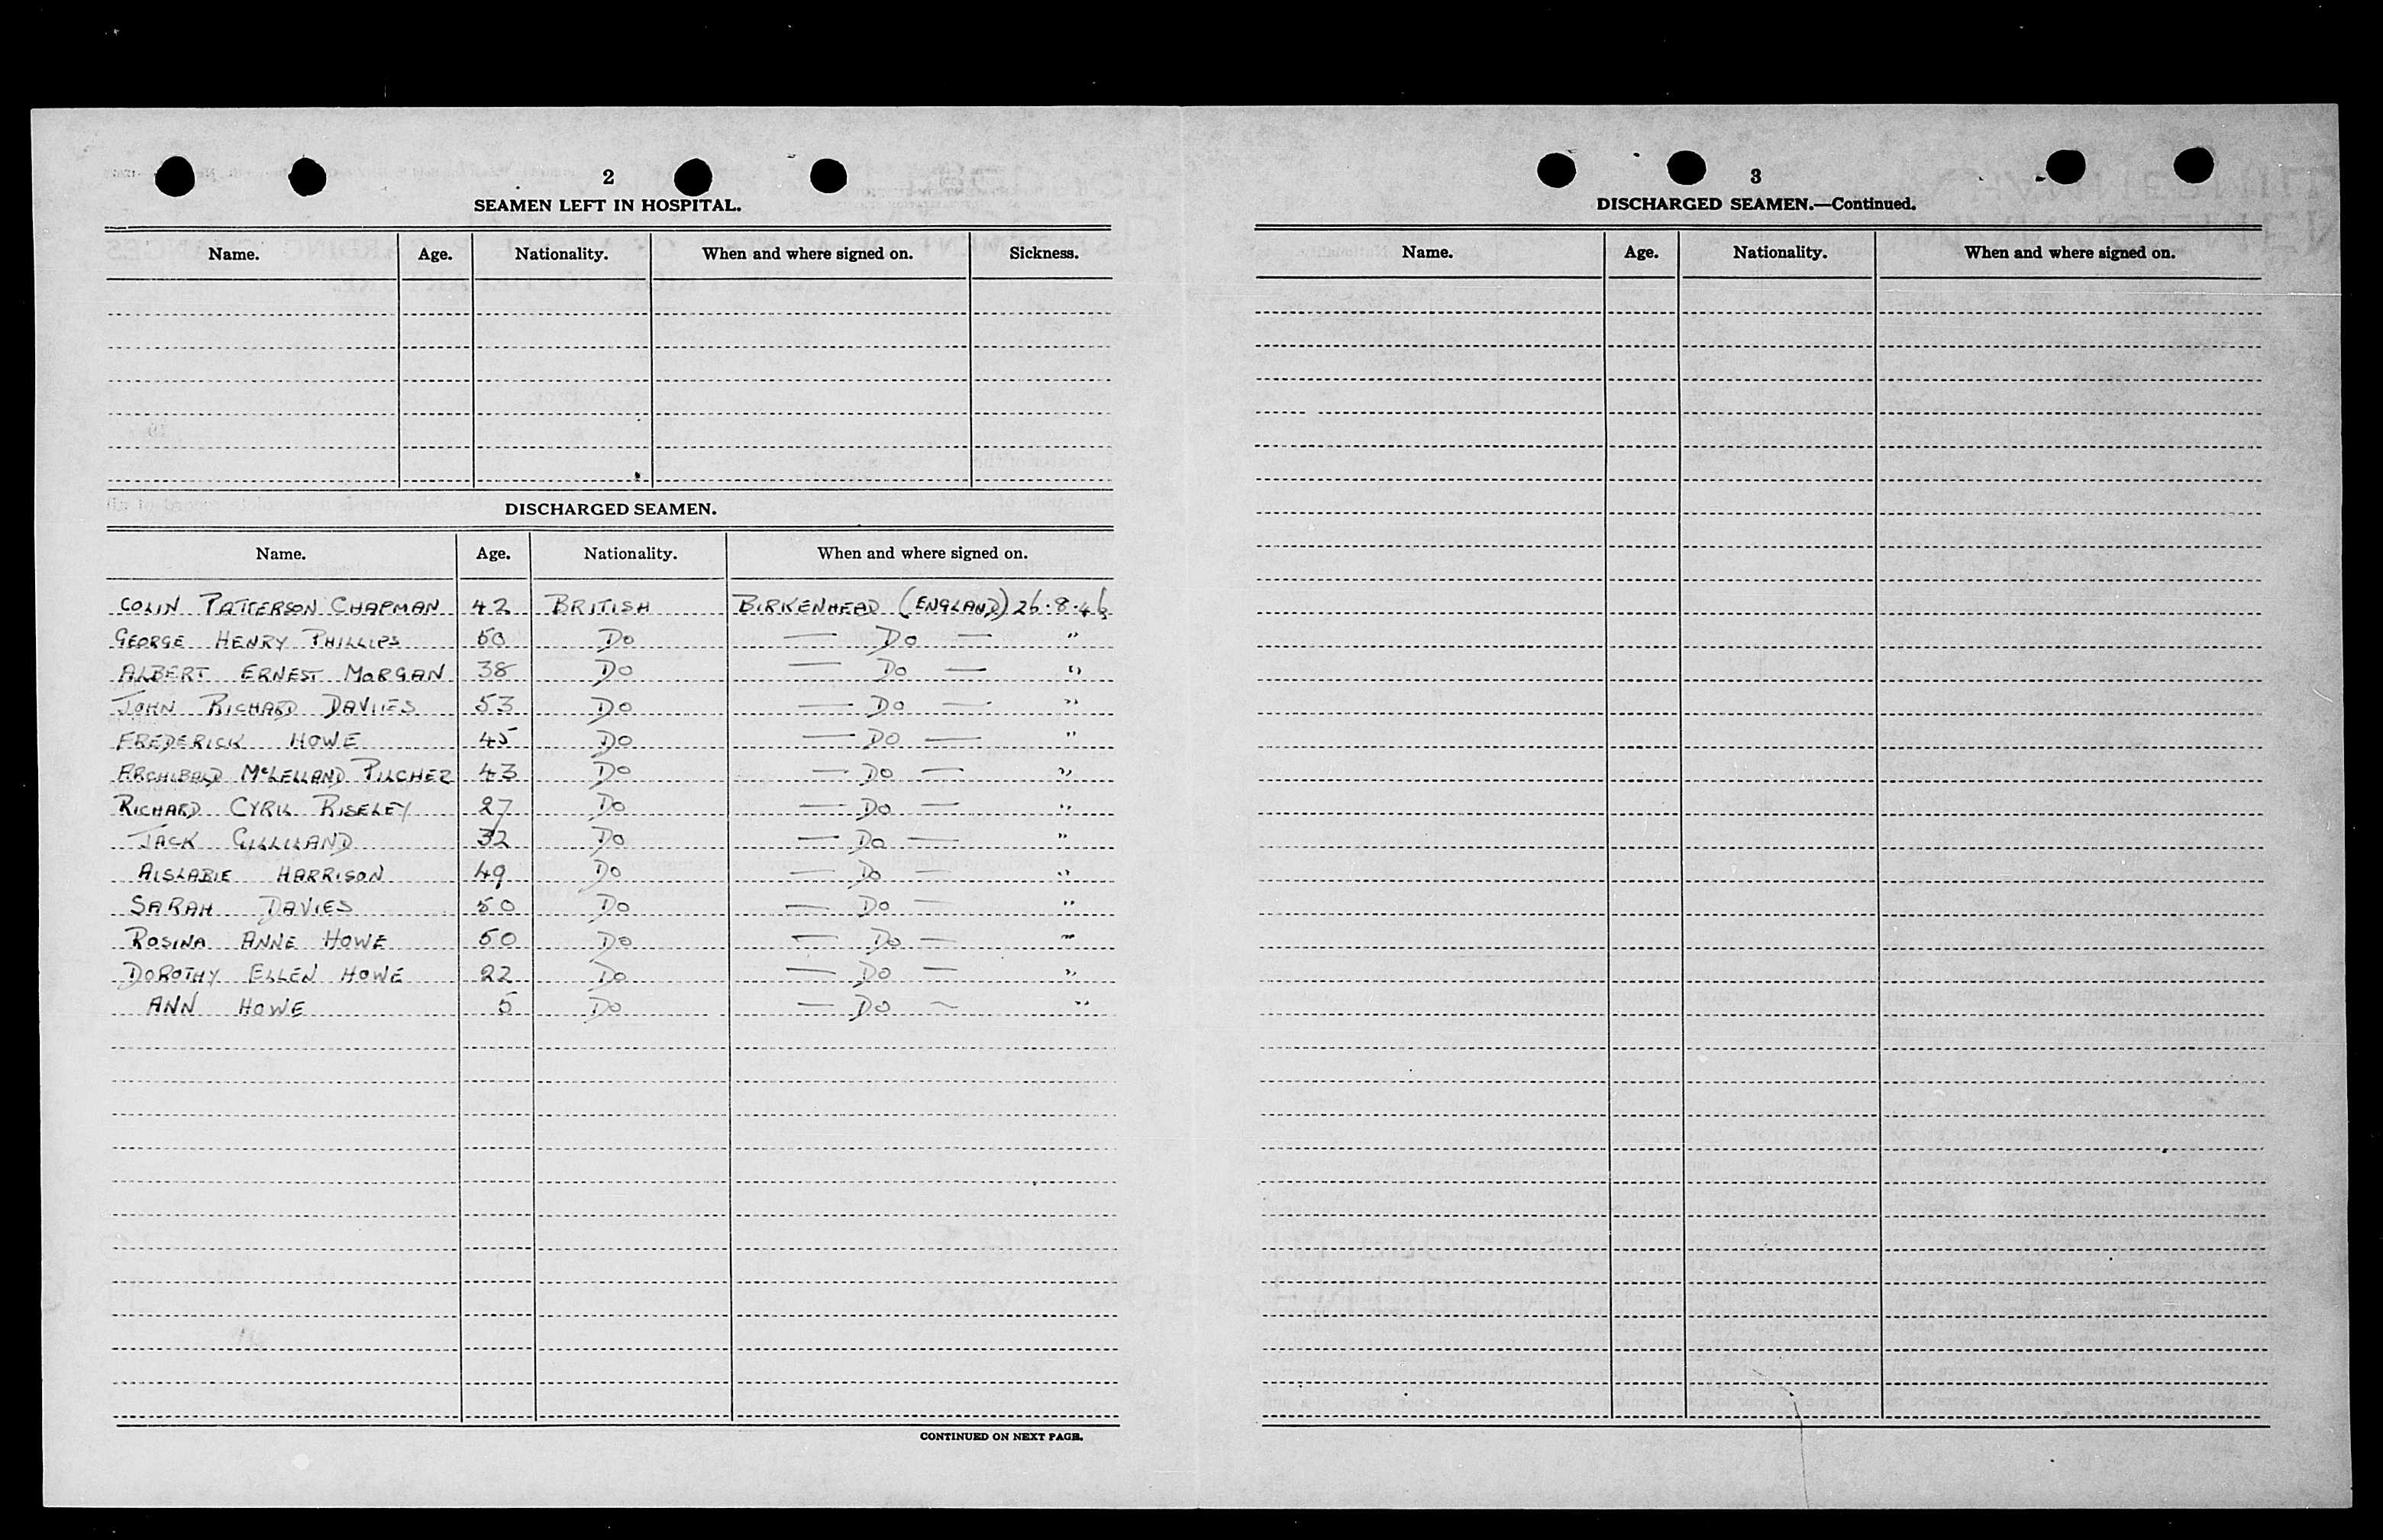 2
SEAMEN LEFT IN HOSPITAL.
Name. Age. Nationality. When and where signed on. Sickness.
DISCHARGED SEAMEN.
Name. Age. Nationality. When and where signed on.
COLIN PATTERSON CHAPMAN 42 BRITISH BIRKENHEAD (ENGLAND) 26.8.46
GEORGE HENRY PHILLIPS 50 DO — DO — "
ALBERT ERNEST MORGAN 38 DO — DO — "
JOHN RICHARD DAVIES 53 DO — DO — "
FREDERICK HOWE 45 DO — DO — "
ARCHIBALD McLELLAND PILCHER 43 DO — DO — "
RICHARD CYRIL RISELEY 27 DO — DO — "
JACK GILLILAND 32 DO — DO — "
AISLABIE HARRISON 49 DO — DO — "
SARAH DAVIES 50 DO — DO — "
ROSINA ANNE HOWE 50 DO — DO — "
DOROTHY ELLEN HOWE 22 DO — DO — "
ANN HOWE 5 DO — DO — "
CONTINUED ON NEXT PAGE.
3
DISCHARGED SEAMEN.—Continued.
Name. Age. Nationality. When and where signed on.